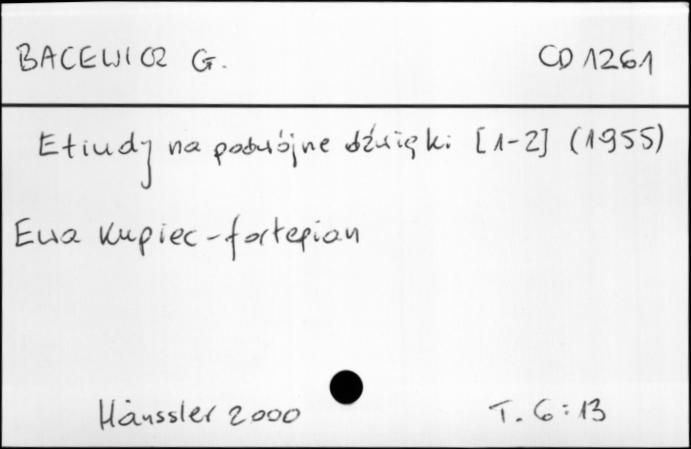 BACEWICZ G. CD 1261
Etiudy na podwójne dźwięki [1-2] (1955)
Ewa Kupiec - fortepian
Hänssler 2000 T. 6:13